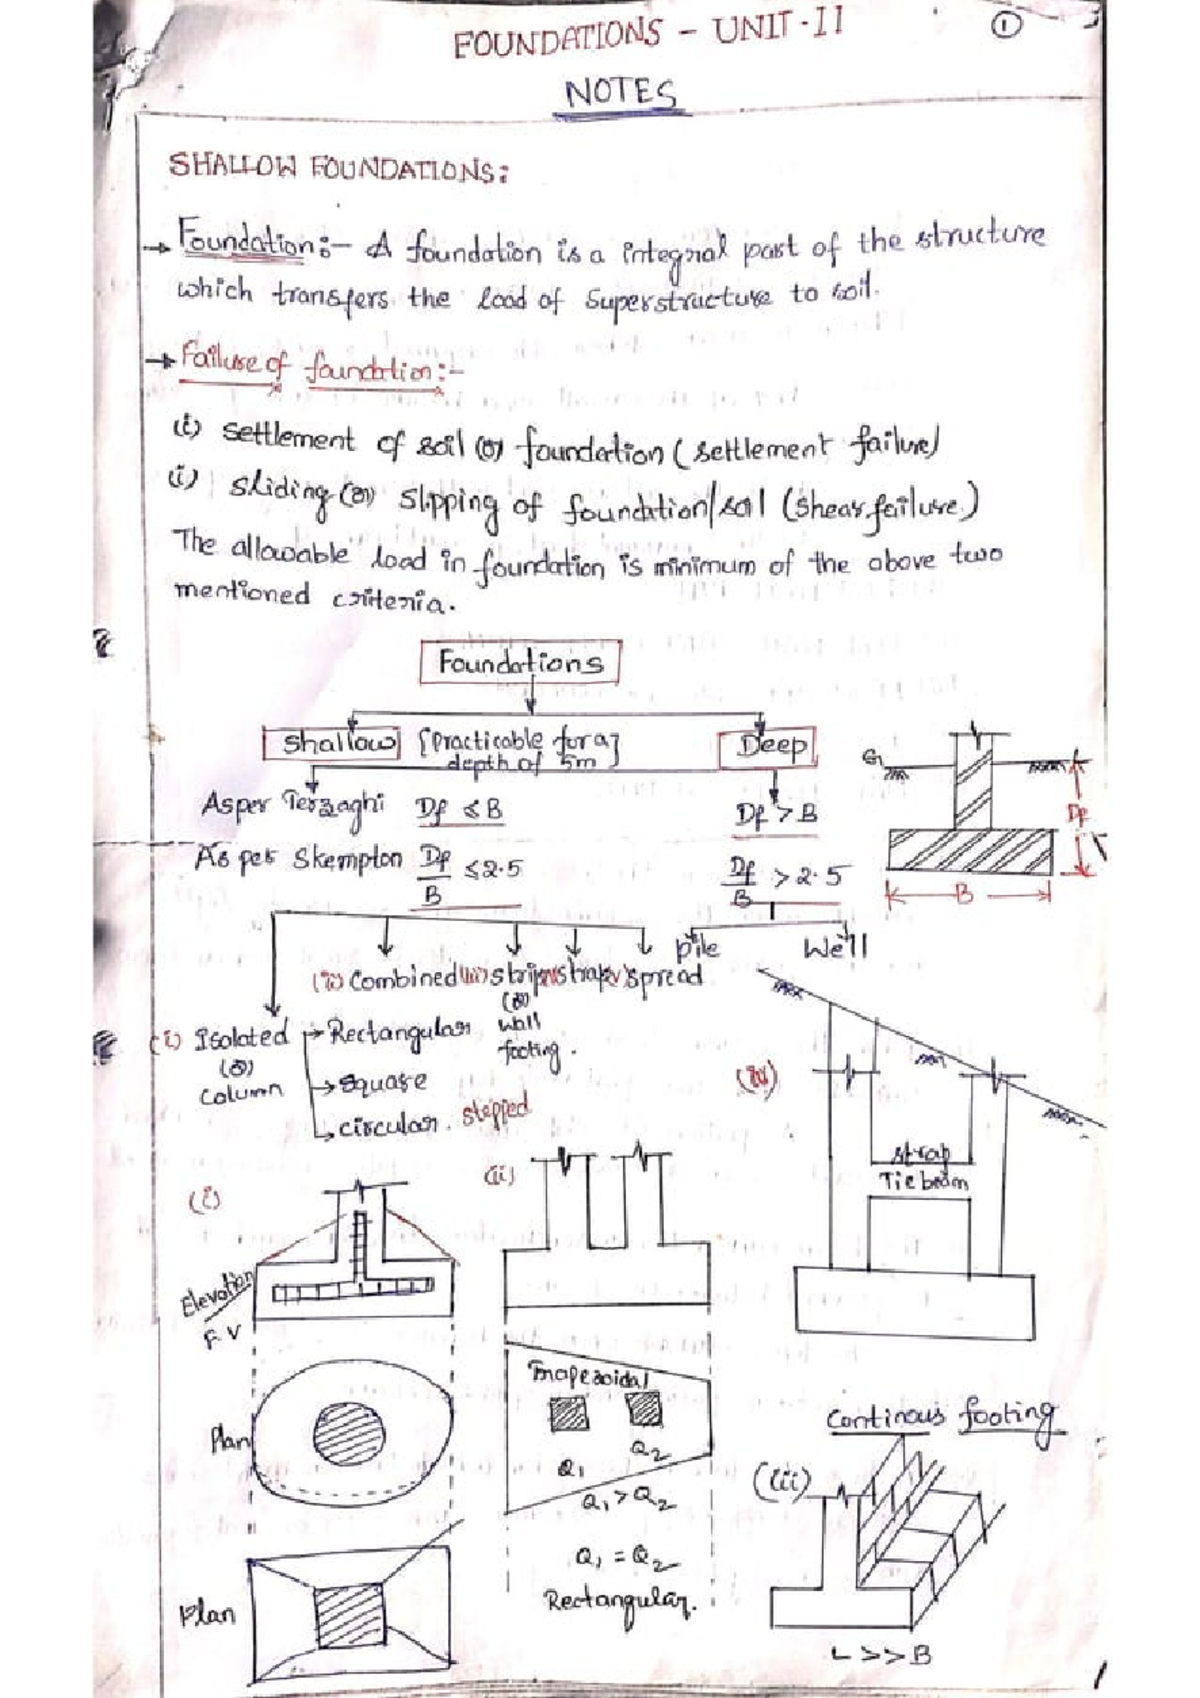 FOUNDATIONS - UNIT-II
1
NOTES
SHALLOW FOUNDATIONS:
→ Foundation:- A foundation is a integral part of the structure
which transfers the load of Superstructure to soil.
→ Failure of foundation:-
(i) settlement of soil (or) foundation (settlement failure)
(ii) sliding (or) slipping of foundation/soil (shear failure)
The allowable load in foundation is minimum of the above two
mentioned criteria.
Foundations
Shallow [practicable for a depth of 5m] Deep
As per Terzaghi Df ≤ B Df > B
As per Skempton Df/B ≤ 2.5 Df/B > 2.5
G
Df
B
pile Well
(ii) Combined (iii) strip (iv) strap (v) spread
(or)
wall
footing.
(i) Isolated → Rectangular
(or)
column → square
↳ circular. stepped
(iv)
strap
Tie beam
(i)
(ii)
Elevation
F.V
Plan
Trapezoidal
Q1 Q2
Q1 > Q2
Q1 = Q2
Rectangular.
Plan
Continous footing
(iii)
L >> B